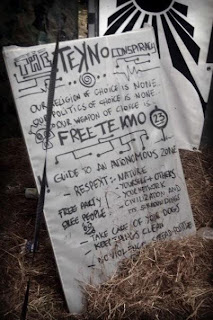 THE TEKNO CONSPIRACY
OUR RELIGION OF CHOICE IS NONE..
OUR POLITICS OF CHOICE IS NONE..
OUR WEAPON OF CHOICE IS
FREE TEKNO 23
GUIDE TO AN AUTONOMOUS ZONE
- RESPECT: - NATURE
- YOURSELF + OTHERS
FREE PARTY - YOUR NETWORK
FREE PEOPLE - CIVILIZATION AND
ITS SURROUNDINGS
- TAKE CARE OF YOUR DOGS
- KEEP CLEAN
- NO VIOLENCE